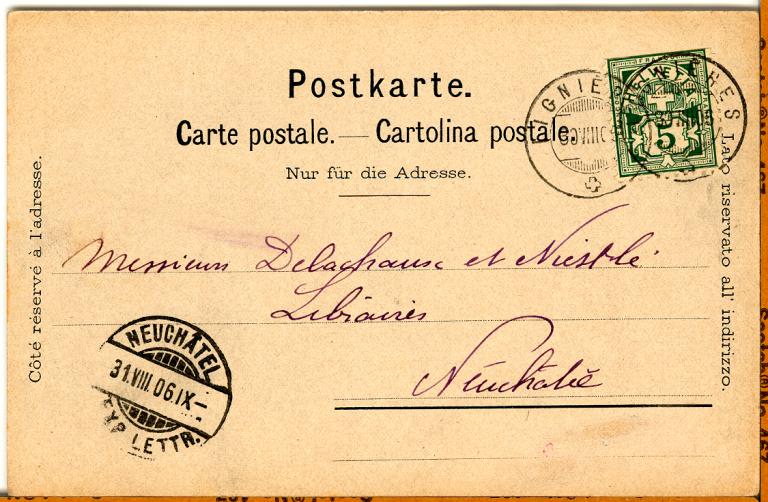 Postkarte.
Carte postale. — Cartolina postale.
Nur für die Adresse.
HELVETIA
5
Côté réservé à l'adresse.
Lato riservato all' indirizzo.
Messieurs Delachaux et Niestlé
Libraires
Neuchâtel
NEUCHÂTEL
31.VIII.06.IX—
EXP. LETTR.